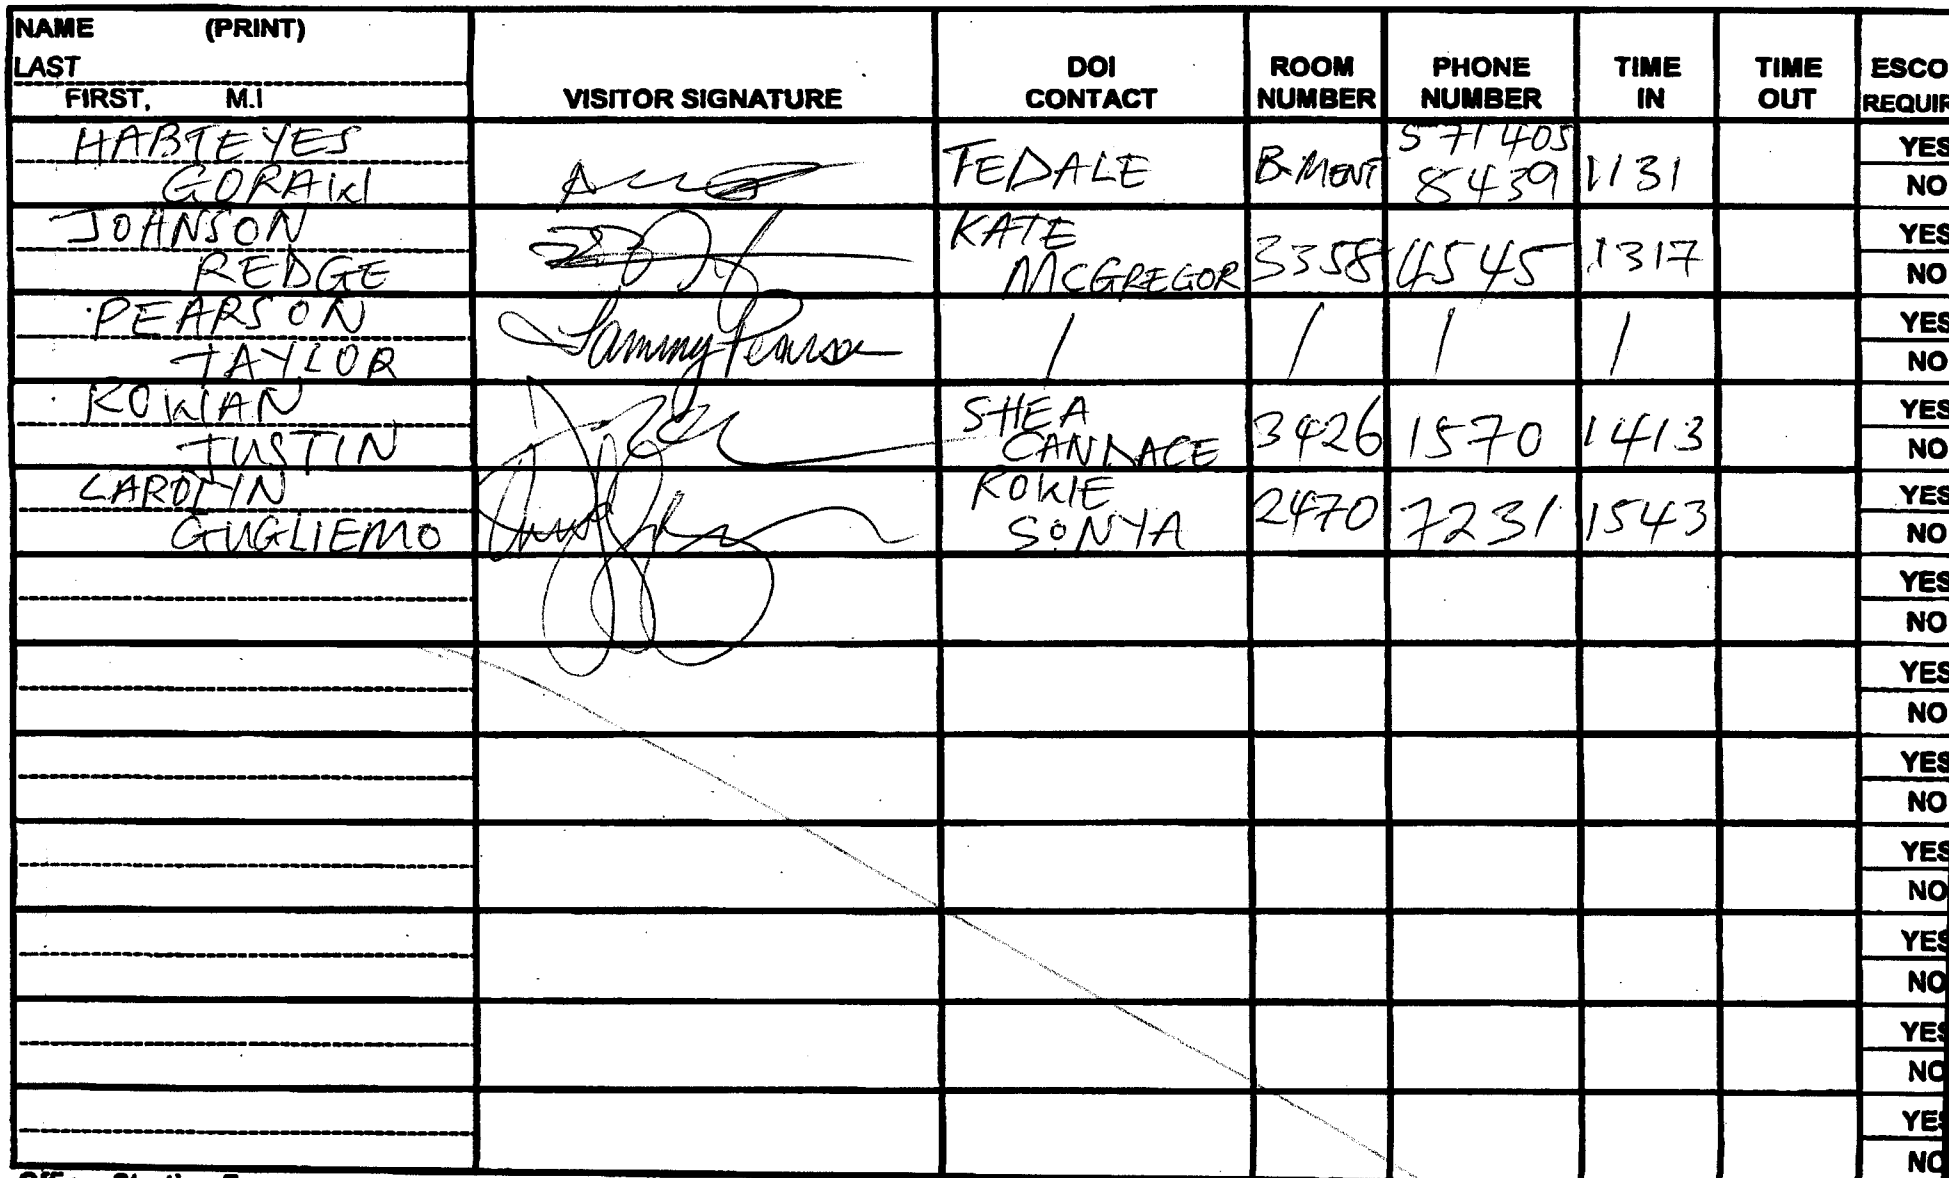 NAME (PRINT)
LAST
FIRST, M.I
VISITOR SIGNATURE
DOI CONTACT
ROOM NUMBER
PHONE NUMBER
TIME IN
TIME OUT
ESCO
REQUIR
HABTEYES
GORAIKI
FEDALE B-MENT 571 405 8439 1131 YES NO
JOHNSON
REDGE
KATE MCGREGOR 3358 4545 1317 YES NO
PEARSON
TAYLOR
Tammy Pearson / / / / YES NO
ROWAN
JUSTIN
SHEA CANDACE 3426 1570 1413 YES NO
CAROLYN
GUGLIEMO
ROWIE SONYA 2470 7231 1543 YES NO
YES
NO
YES
NO
YES
NO
YES
NO
YES
NO
YES
NO
YES
NO